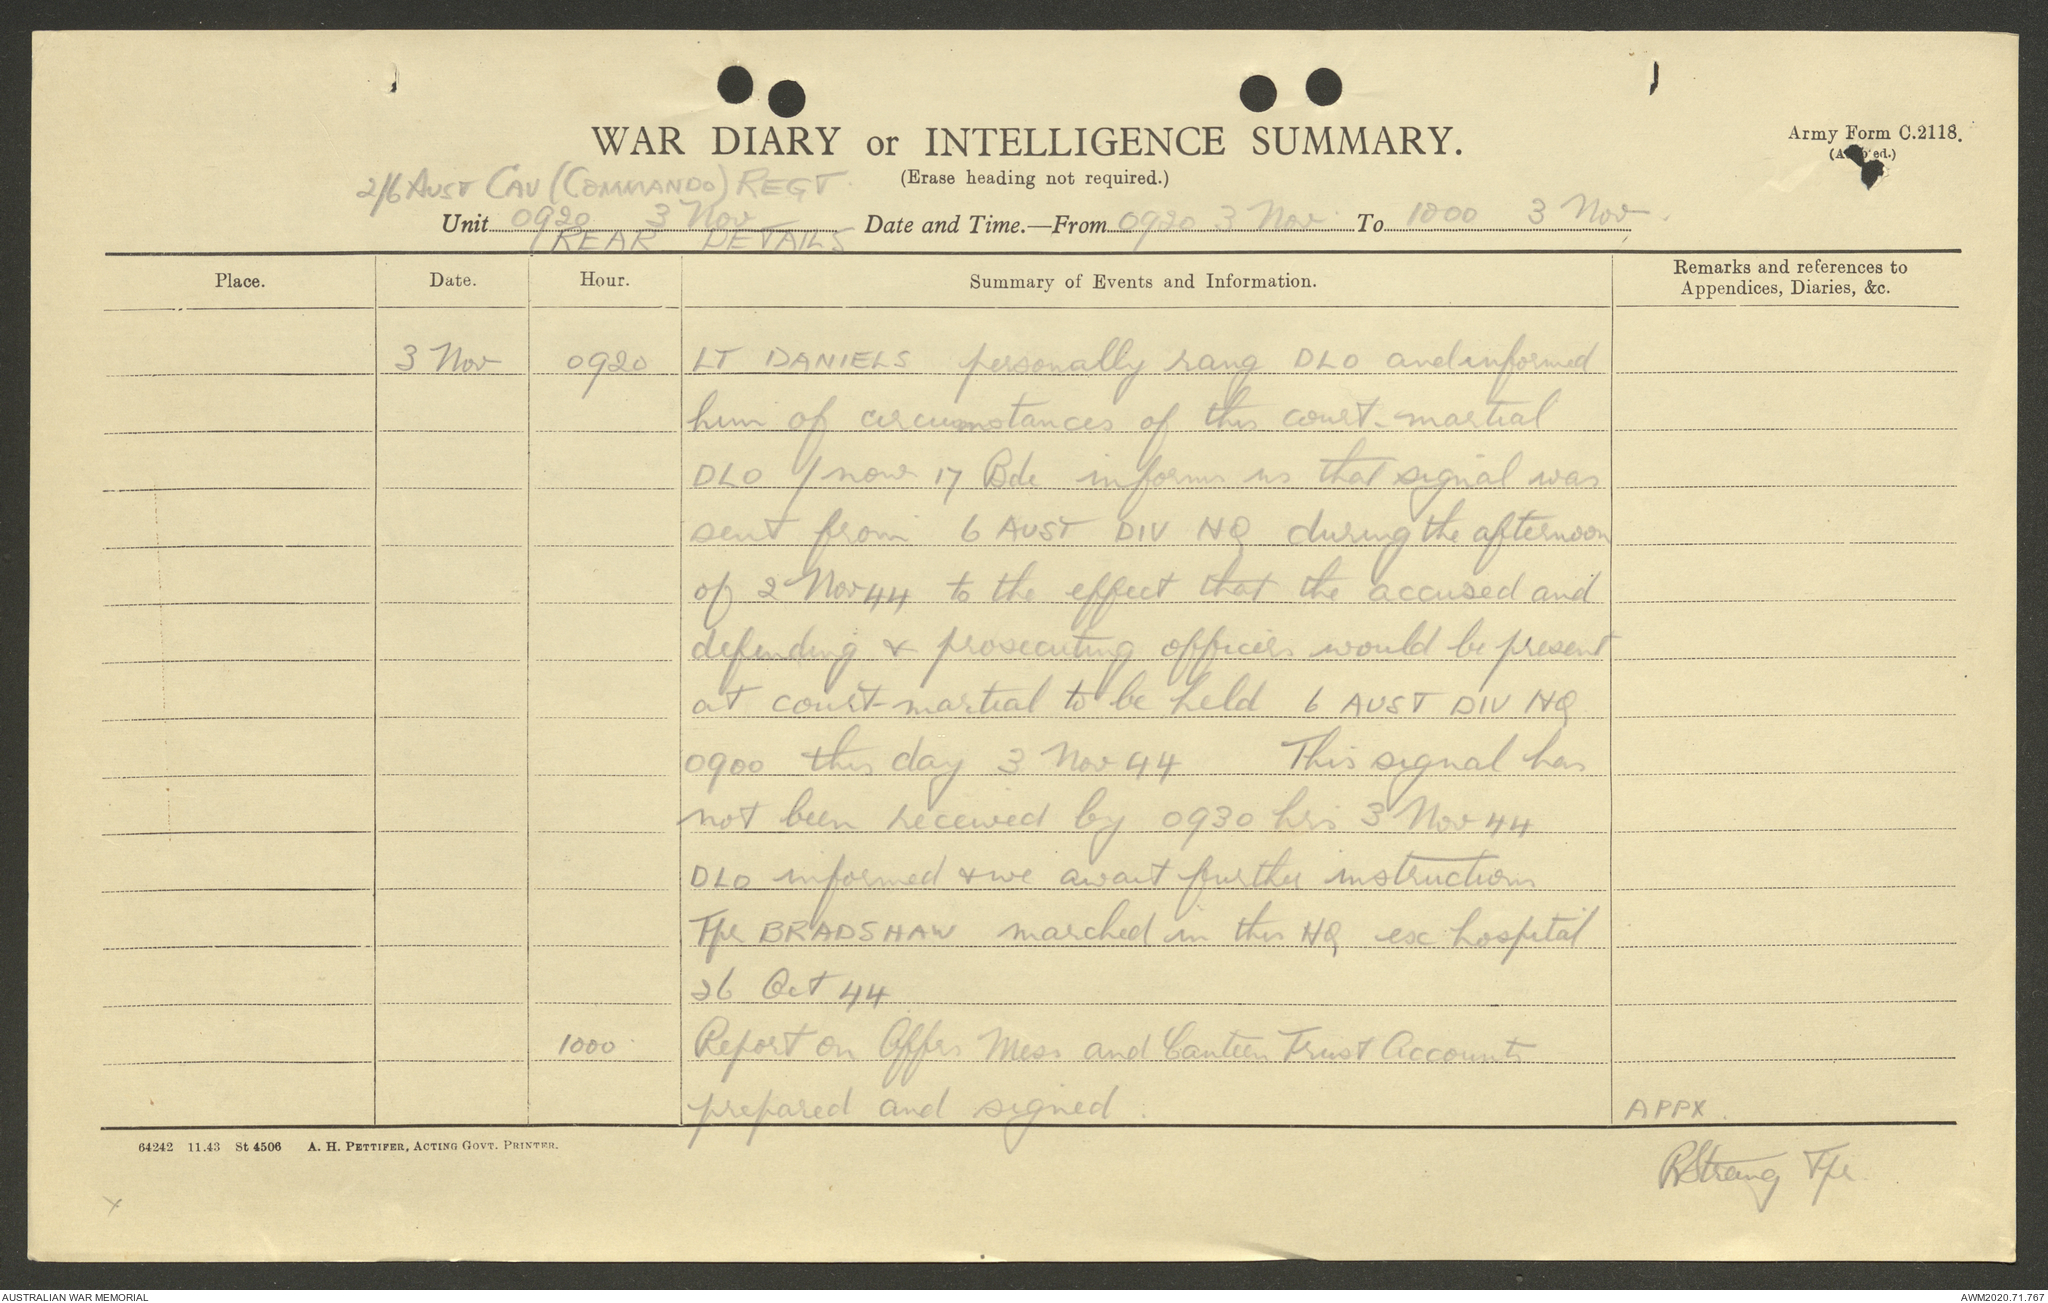 WAR DIARY or INTELLIGENCE SUMMARY.
Army Form C.2118.
(Erase heading not required.)
2/6 AUST CAV (COMMANDO) REGT.
Unit 0920 3 Nov Date and Time.—From 0920 3 Nov To 1000 3 Nov.
REAR DETAILS
Place. Date. Hour. Summary of Events and Information. Remarks and references to
Appendices, Diaries, &c.
3 Nov 0920 LT DANIELS personally rang DLO and informed
him of circumstances of this court-martial
DLO / now 17 Bde informs us that signal was
sent from 6 AUST DIV HQ during the afternoon
of 2 Nov 44 to the effect that the accused and
defending & prosecuting officers would be present
at court-martial to be held 6 AUST DIV HQ
0900 this day 3 Nov 44 This signal has
not been received by 0930 hrs 3 Nov 44
DLO informed & we await further instructions
Tpr BRADSHAW marched in this HQ ex hospital
26 Oct 44
1000 Report on Offrs Mess and Canteen Trust Accounts
prepared and signed. APPX.
64242 11.43 St 4506 A. H. PETTIFER, ACTING GOVT. PRINTER.
RStrang Tpr.
x
AUSTRALIAN WAR MEMORIAL AWM2020.71.767